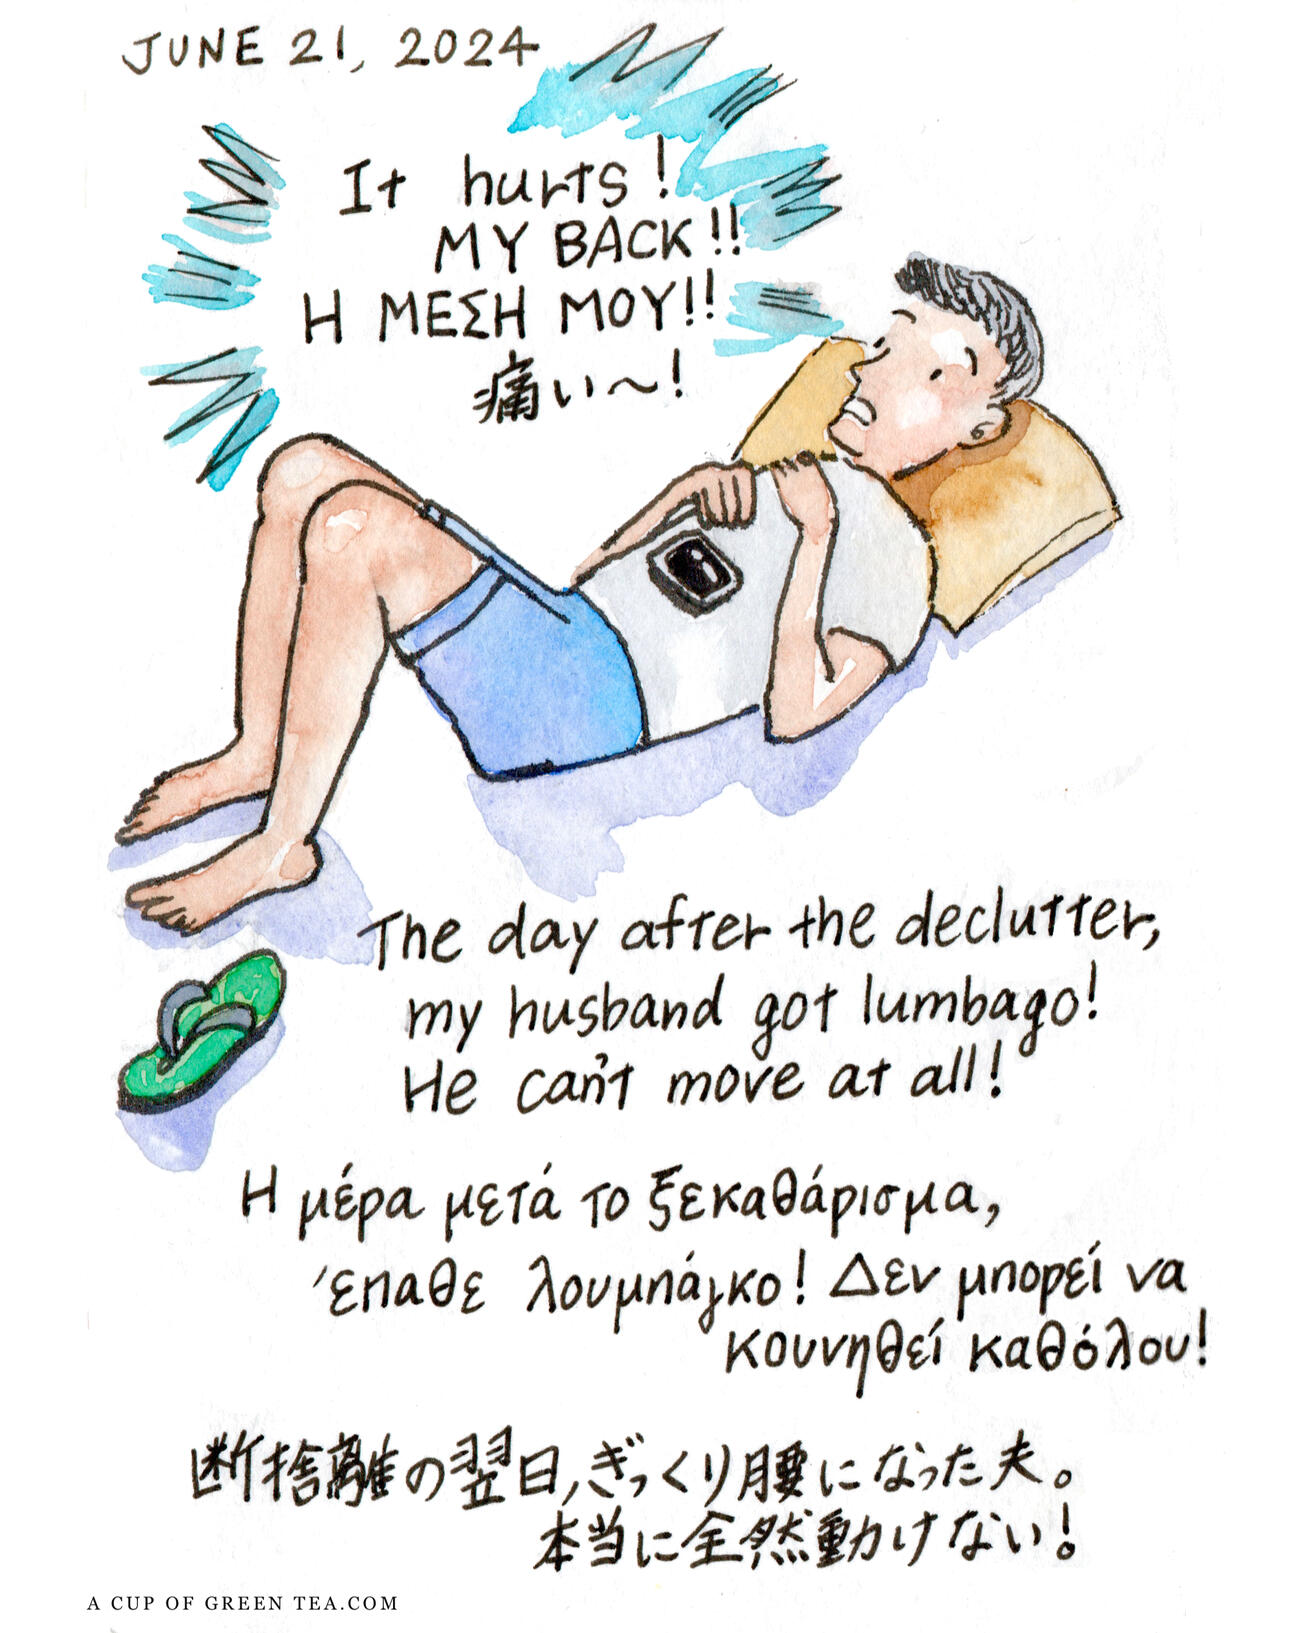 JUNE 21, 2024
It hurts!
MY BACK!!
Η ΜΕΣΗ ΜΟΥ!!
痛い〜!
The day after the declutter,
my husband got lumbago!
He can't move at all!
Η μέρα μετά το ξεκαθάρισμα,
έπαθε λουμπάγκο! Δεν μπορεί να
κουνηθεί καθόλου!
断捨離の翌日、ぎっくり腰になった夫。
本当に全然動けない!
A CUP OF GREEN TEA.COM